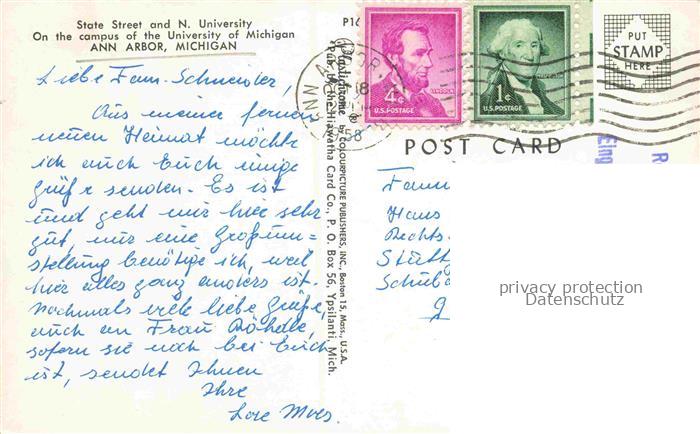 State Street and N. University
On the campus of the University of Michigan
ANN ARBOR, MICHIGAN
Liebe Fam. Schneider,
Aus meiner fernen
neuen Heimat möchte
ich auch Euch einige
Grüße senden. Es ist
und geht mir hier sehr
gut, nur eine Großum=
stellung benötige ich, weil
hier alles ganz anders ist.
Nochmals viele liebe Grüße,
auch an Frau
sofern sie noch bei Euch
ist, sendet Ihnen
Ihre
Lore
P16
Plastichrome ® by COLOURPICTURE PUBLISHERS, INC., Boston 15, Mass., U.S.A.
Pub. by the Hiawatha Card Co., P. O. Box 56, Ypsilanti, Mich.
ANN ARBOR
18
1958
4¢
LINCOLN
U.S. POSTAGE
1¢
U.S. POSTAGE
PUT
STAMP
HERE
POST CARD
Fam
Hans
Rechts
Stuttg
Schub
R
Eing
privacy protection
Datenschutz